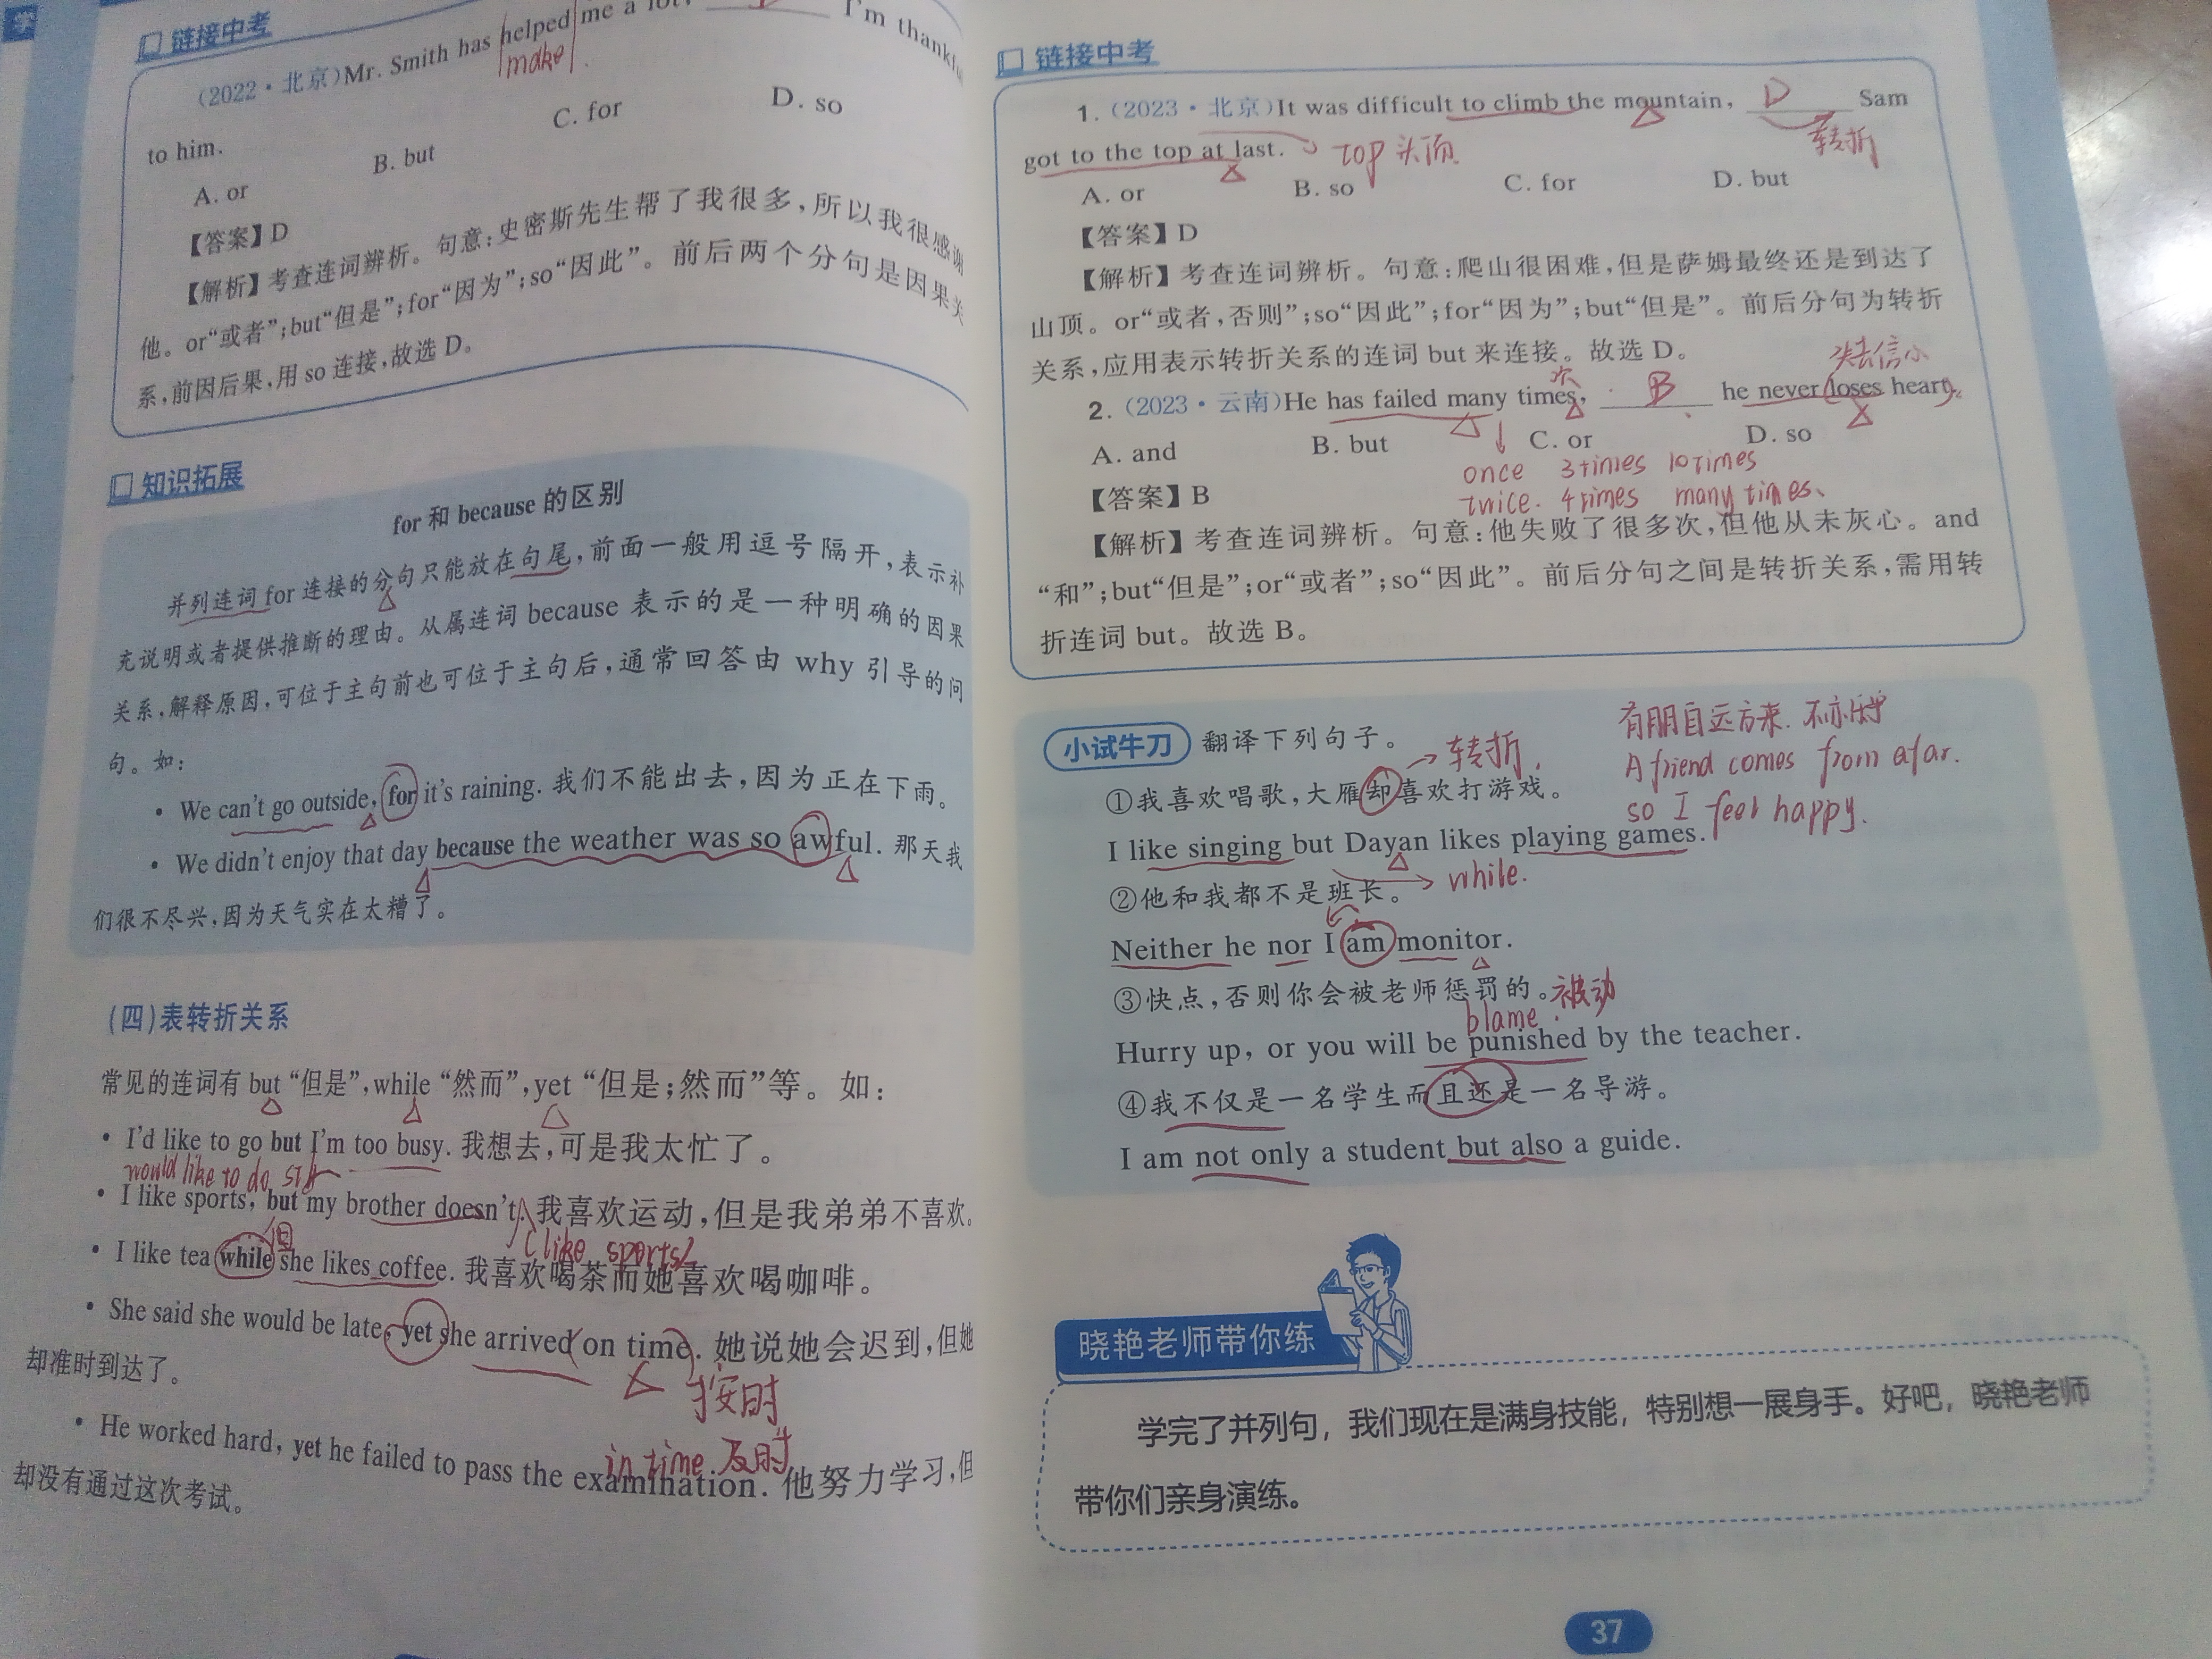 链接中考
(2022·北京)Mr. Smith has helped me a lot, I'm thankful
make
to him.
A. or B. but C. for D. so
【答案】D
【解析】考查连词辨析。句意:史密斯先生帮了我很多,所以我很感谢
他。or“或者”;but“但是”;for“因为”;so“因此”。前后两个分句是因果关
系,前因后果,用 so 连接,故选 D。
知识拓展
for 和 because 的区别
并列连词 for 连接的分句只能放在句尾,前面一般用逗号隔开,表示补
充说明或者提供推断的理由。从属连词 because 表示的是一种明确的因果
关系,解释原因,可位于主句前也可位于主句后,通常回答由 why 引导的问
句。如:
• We can't go outside, for it's raining. 我们不能出去,因为正在下雨。
• We didn't enjoy that day because the weather was so awful. 那天我
们很不尽兴,因为天气实在太糟了。
(四)表转折关系
常见的连词有 but “但是”,while “然而”,yet “但是;然而”等。如:
• I'd like to go but I'm too busy. 我想去,可是我太忙了。
would like to do sth
• I like sports, but my brother doesn't. 我喜欢运动,但是我弟弟不喜欢。
但
(like sports)
• I like tea while she likes coffee. 我喜欢喝茶而她喜欢喝咖啡。
• She said she would be late, yet she arrived on time. 她说她会迟到,但她
却准时到达了。
按时
in time 及时
• He worked hard, yet he failed to pass the examination. 他努力学习,但
却没有通过这次考试。
链接中考
1. (2023·北京)It was difficult to climb the mountain, D Sam
转折
got to the top at last. top 头顶
A. or B. so C. for D. but
【答案】D
【解析】考查连词辨析。句意:爬山很困难,但是萨姆最终还是到达了
山顶。or“或者,否则”;so“因此”;for“因为”;but“但是”。前后分句为转折
关系,应用表示转折关系的连词 but 来连接。故选 D。
次 失去信心
2. (2023·云南)He has failed many times, B he never loses heart.
A. and B. but C. or D. so
once 3times 10times
【答案】B
twice. 4times many times.
【解析】考查连词辨析。句意:他失败了很多次,但他从未灰心。and
“和”;but“但是”;or“或者”;so“因此”。前后分句之间是转折关系,需用转
折连词 but。故选 B。
小试牛刀 翻译下列句子。
转折
有朋自远方来. 不亦
A friend comes from afar.
so I feel happy.
①我喜欢唱歌,大雁却喜欢打游戏。
I like singing but Dayan likes playing games.
while.
②他和我都不是班长。
Neither he nor I am monitor.
③快点,否则你会被老师惩罚的。被动
blame
Hurry up, or you will be punished by the teacher.
④我不仅是一名学生而且还是一名导游。
I am not only a student but also a guide.
晓艳老师带你练
学完了并列句，我们现在是满身技能，特别想一展身手。好吧，晓艳老师
带你们亲身演练。
37